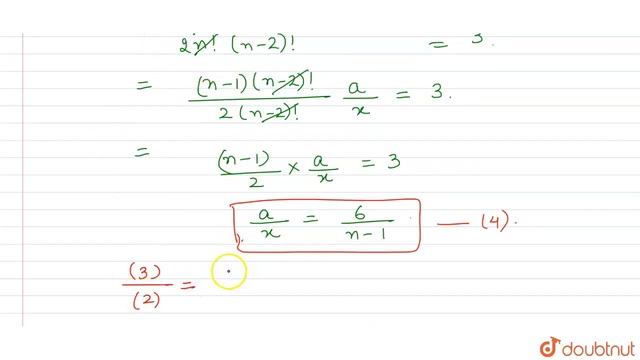 2n! (n-2)! = 3.
= (n-1)(n-2)! / 2(n-2)! a/x = 3.
= (n-1)/2 × a/x = 3
a/x = 6/n-1 — (4).
(3)/(2) =
doubtnut